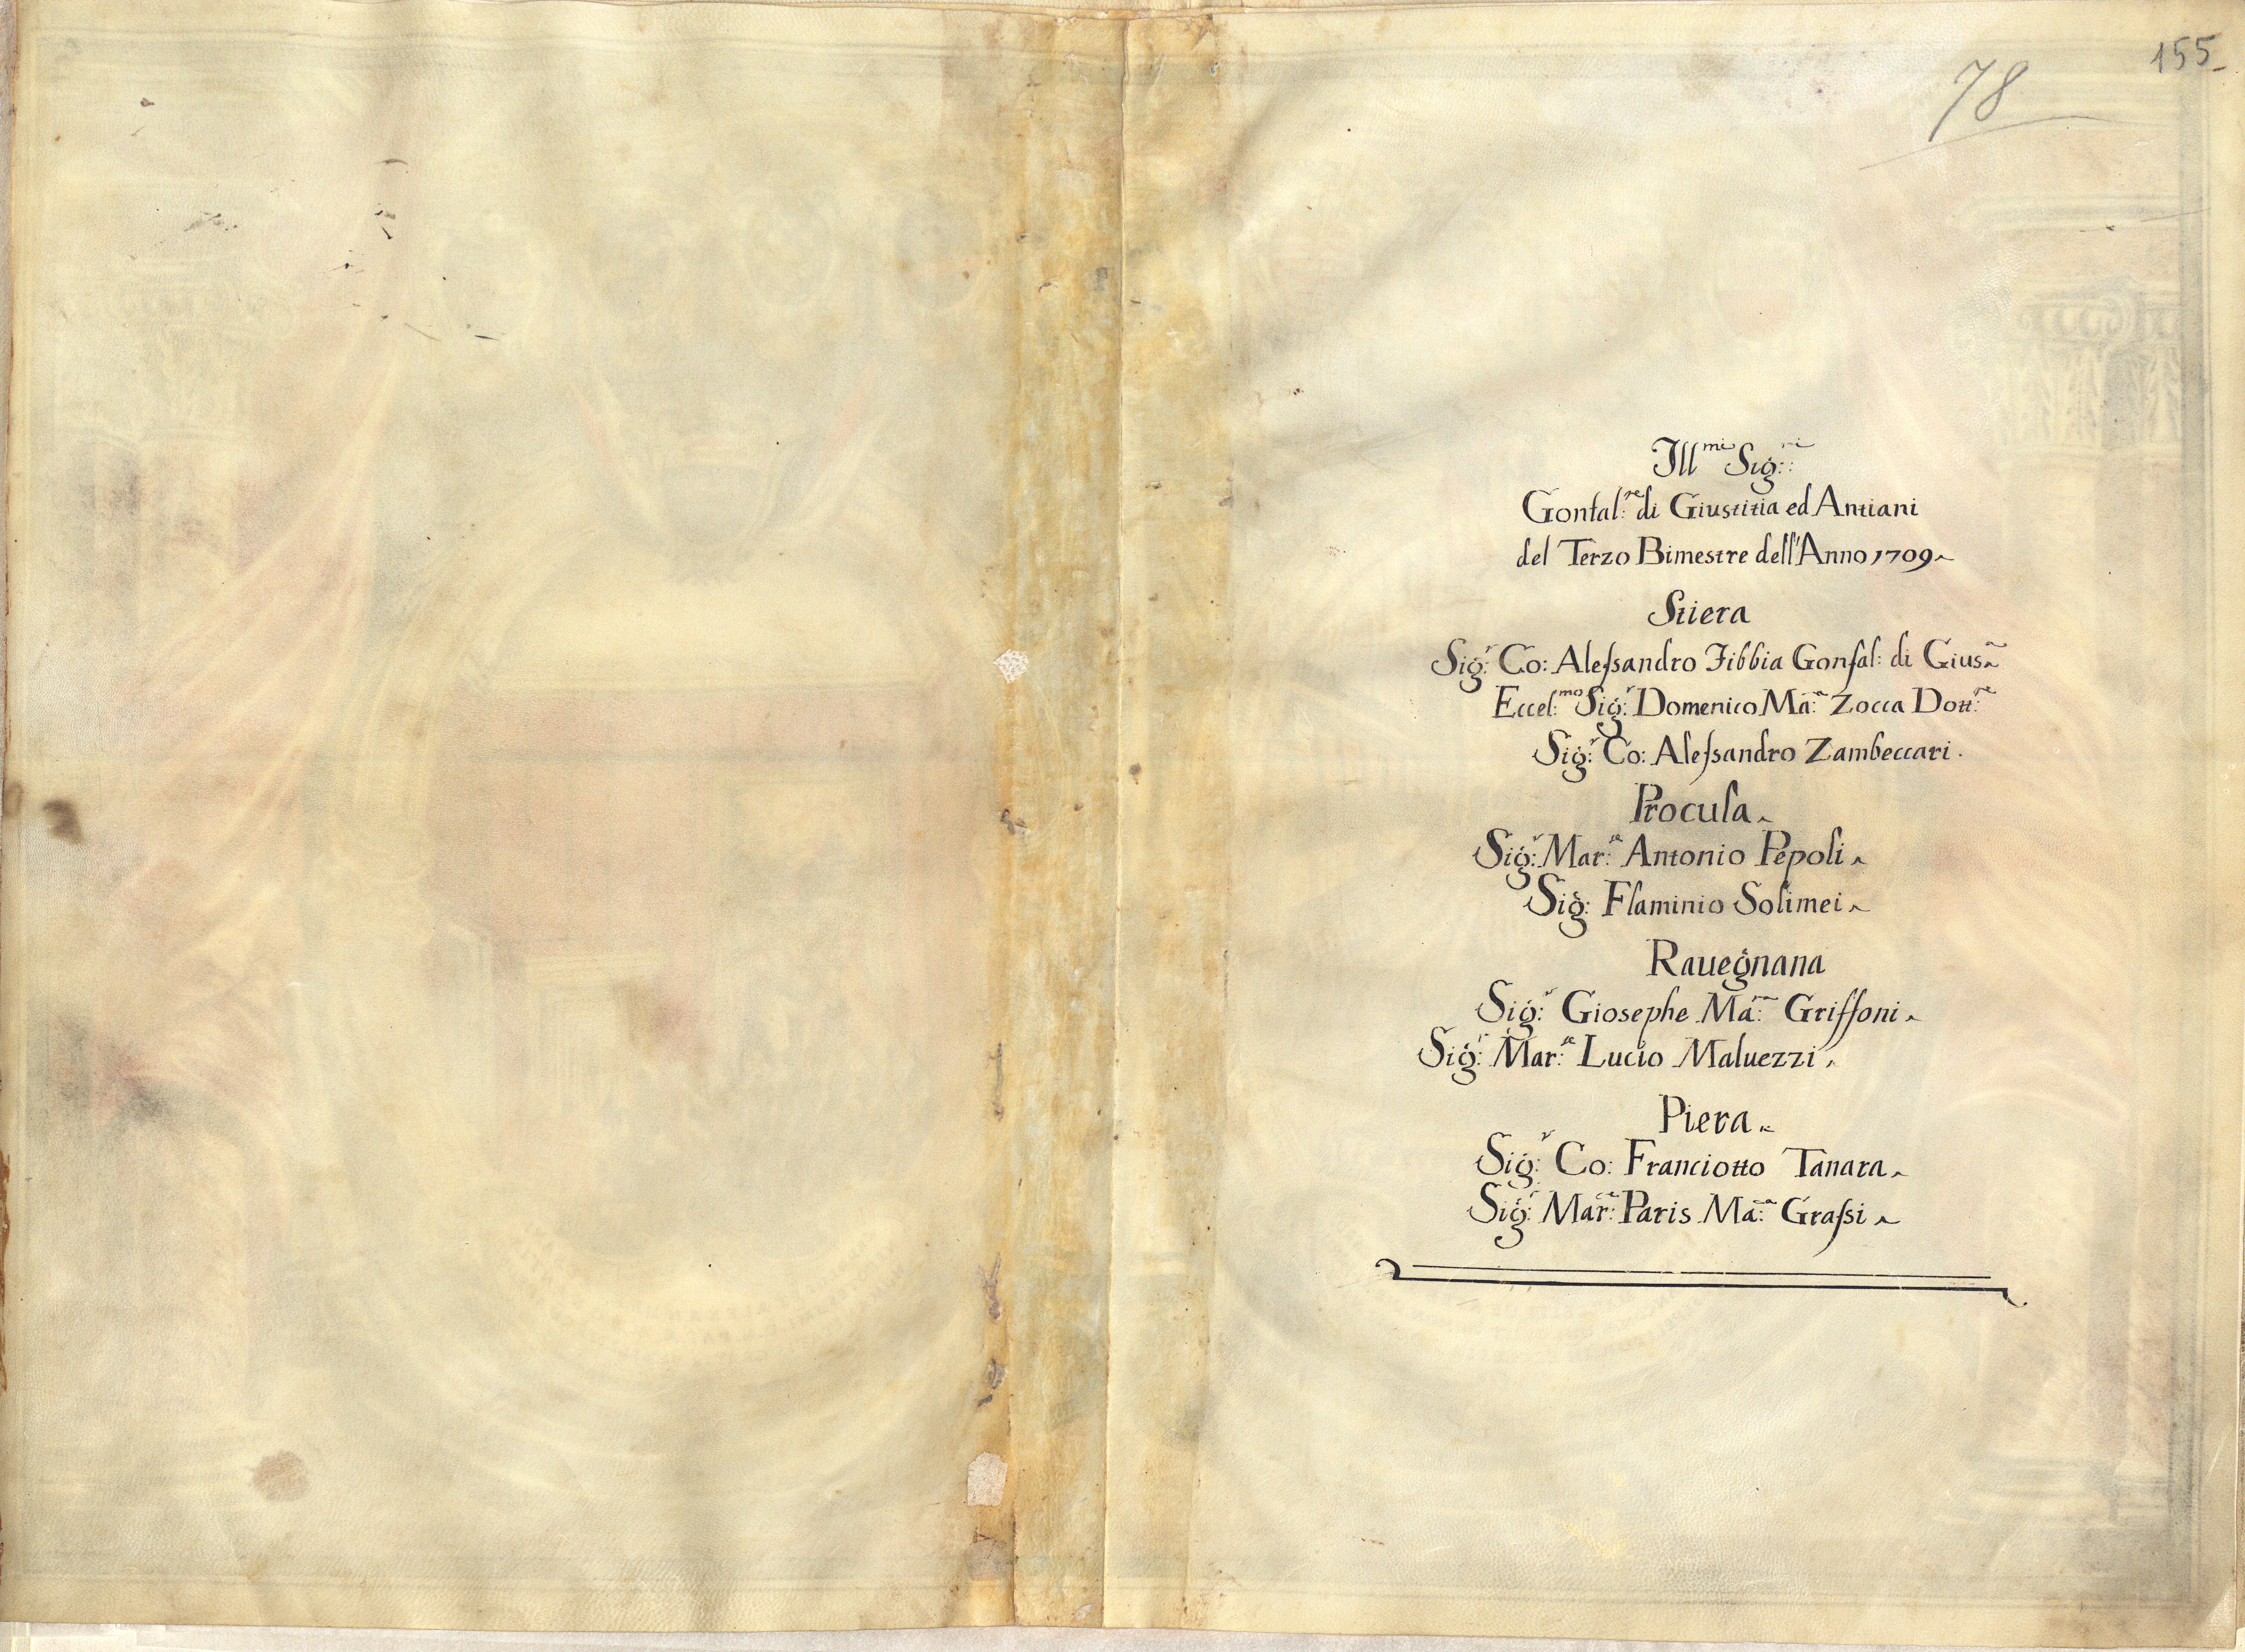 155
78
Ill.mi Sig:ri
Gonfal:re di Giustitia ed Antiani
del Terzo Bimestre dell'Anno 1709
Stiera
Sig:r Co: Alessandro Fibbia Gonfal: di Gius.a
Eccel:mo Sig:r Domenico Ma:a Zocca Dott:re
Sig:r Co: Alessandro Zambeccari.
Procula
Sig:r Mar:se Antonio Pepoli
Sig: Flaminio Solimei
Rauegnana
Sig:r Giosephe Ma:a Griffoni
Sig:r Mar:se Lucio Maluezzi
Piera
Sig:r Co: Franciotto Tanara
Sig:r Mar:se Paris Ma:a Grassi